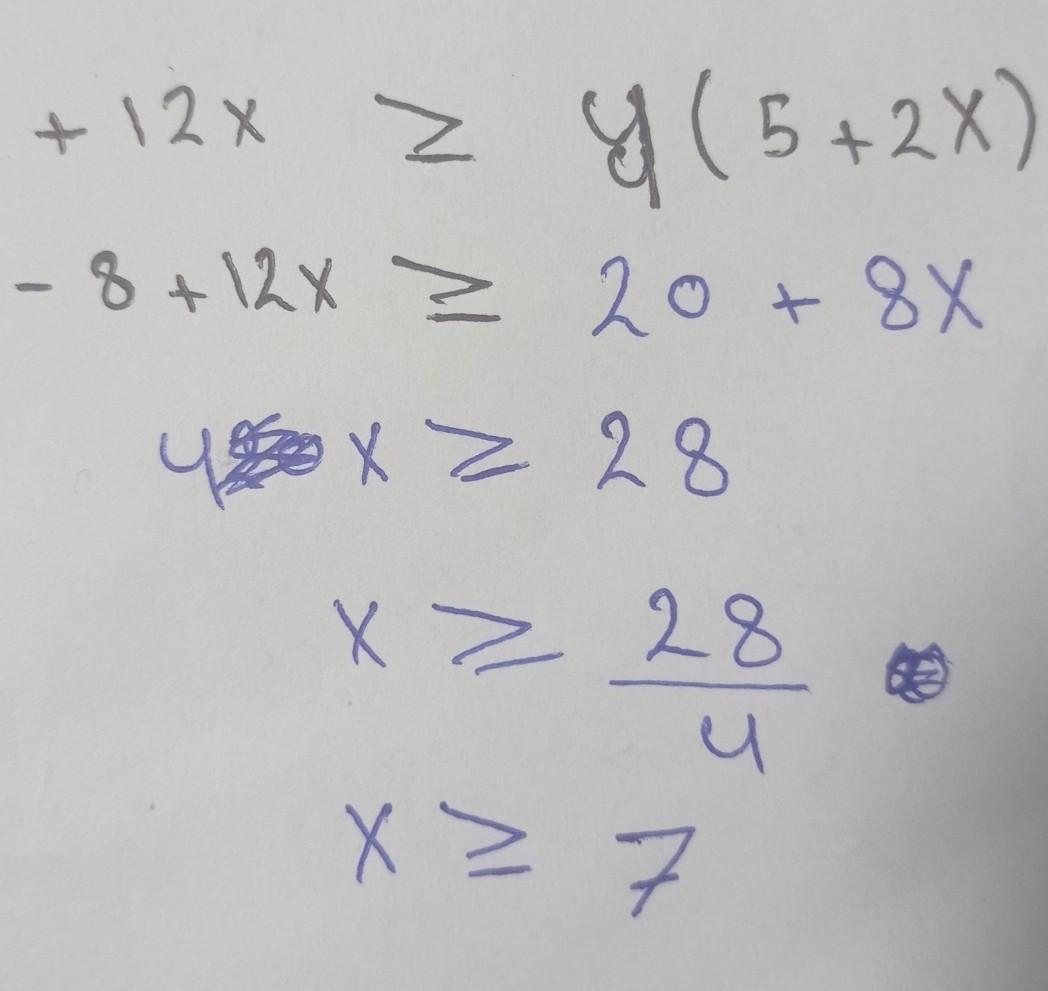 + 12x ≥ 4(5+2x)
- 8 + 12x ≥ 20 + 8x
4x ≥ 28
x ≥ 28/4
x ≥ 7